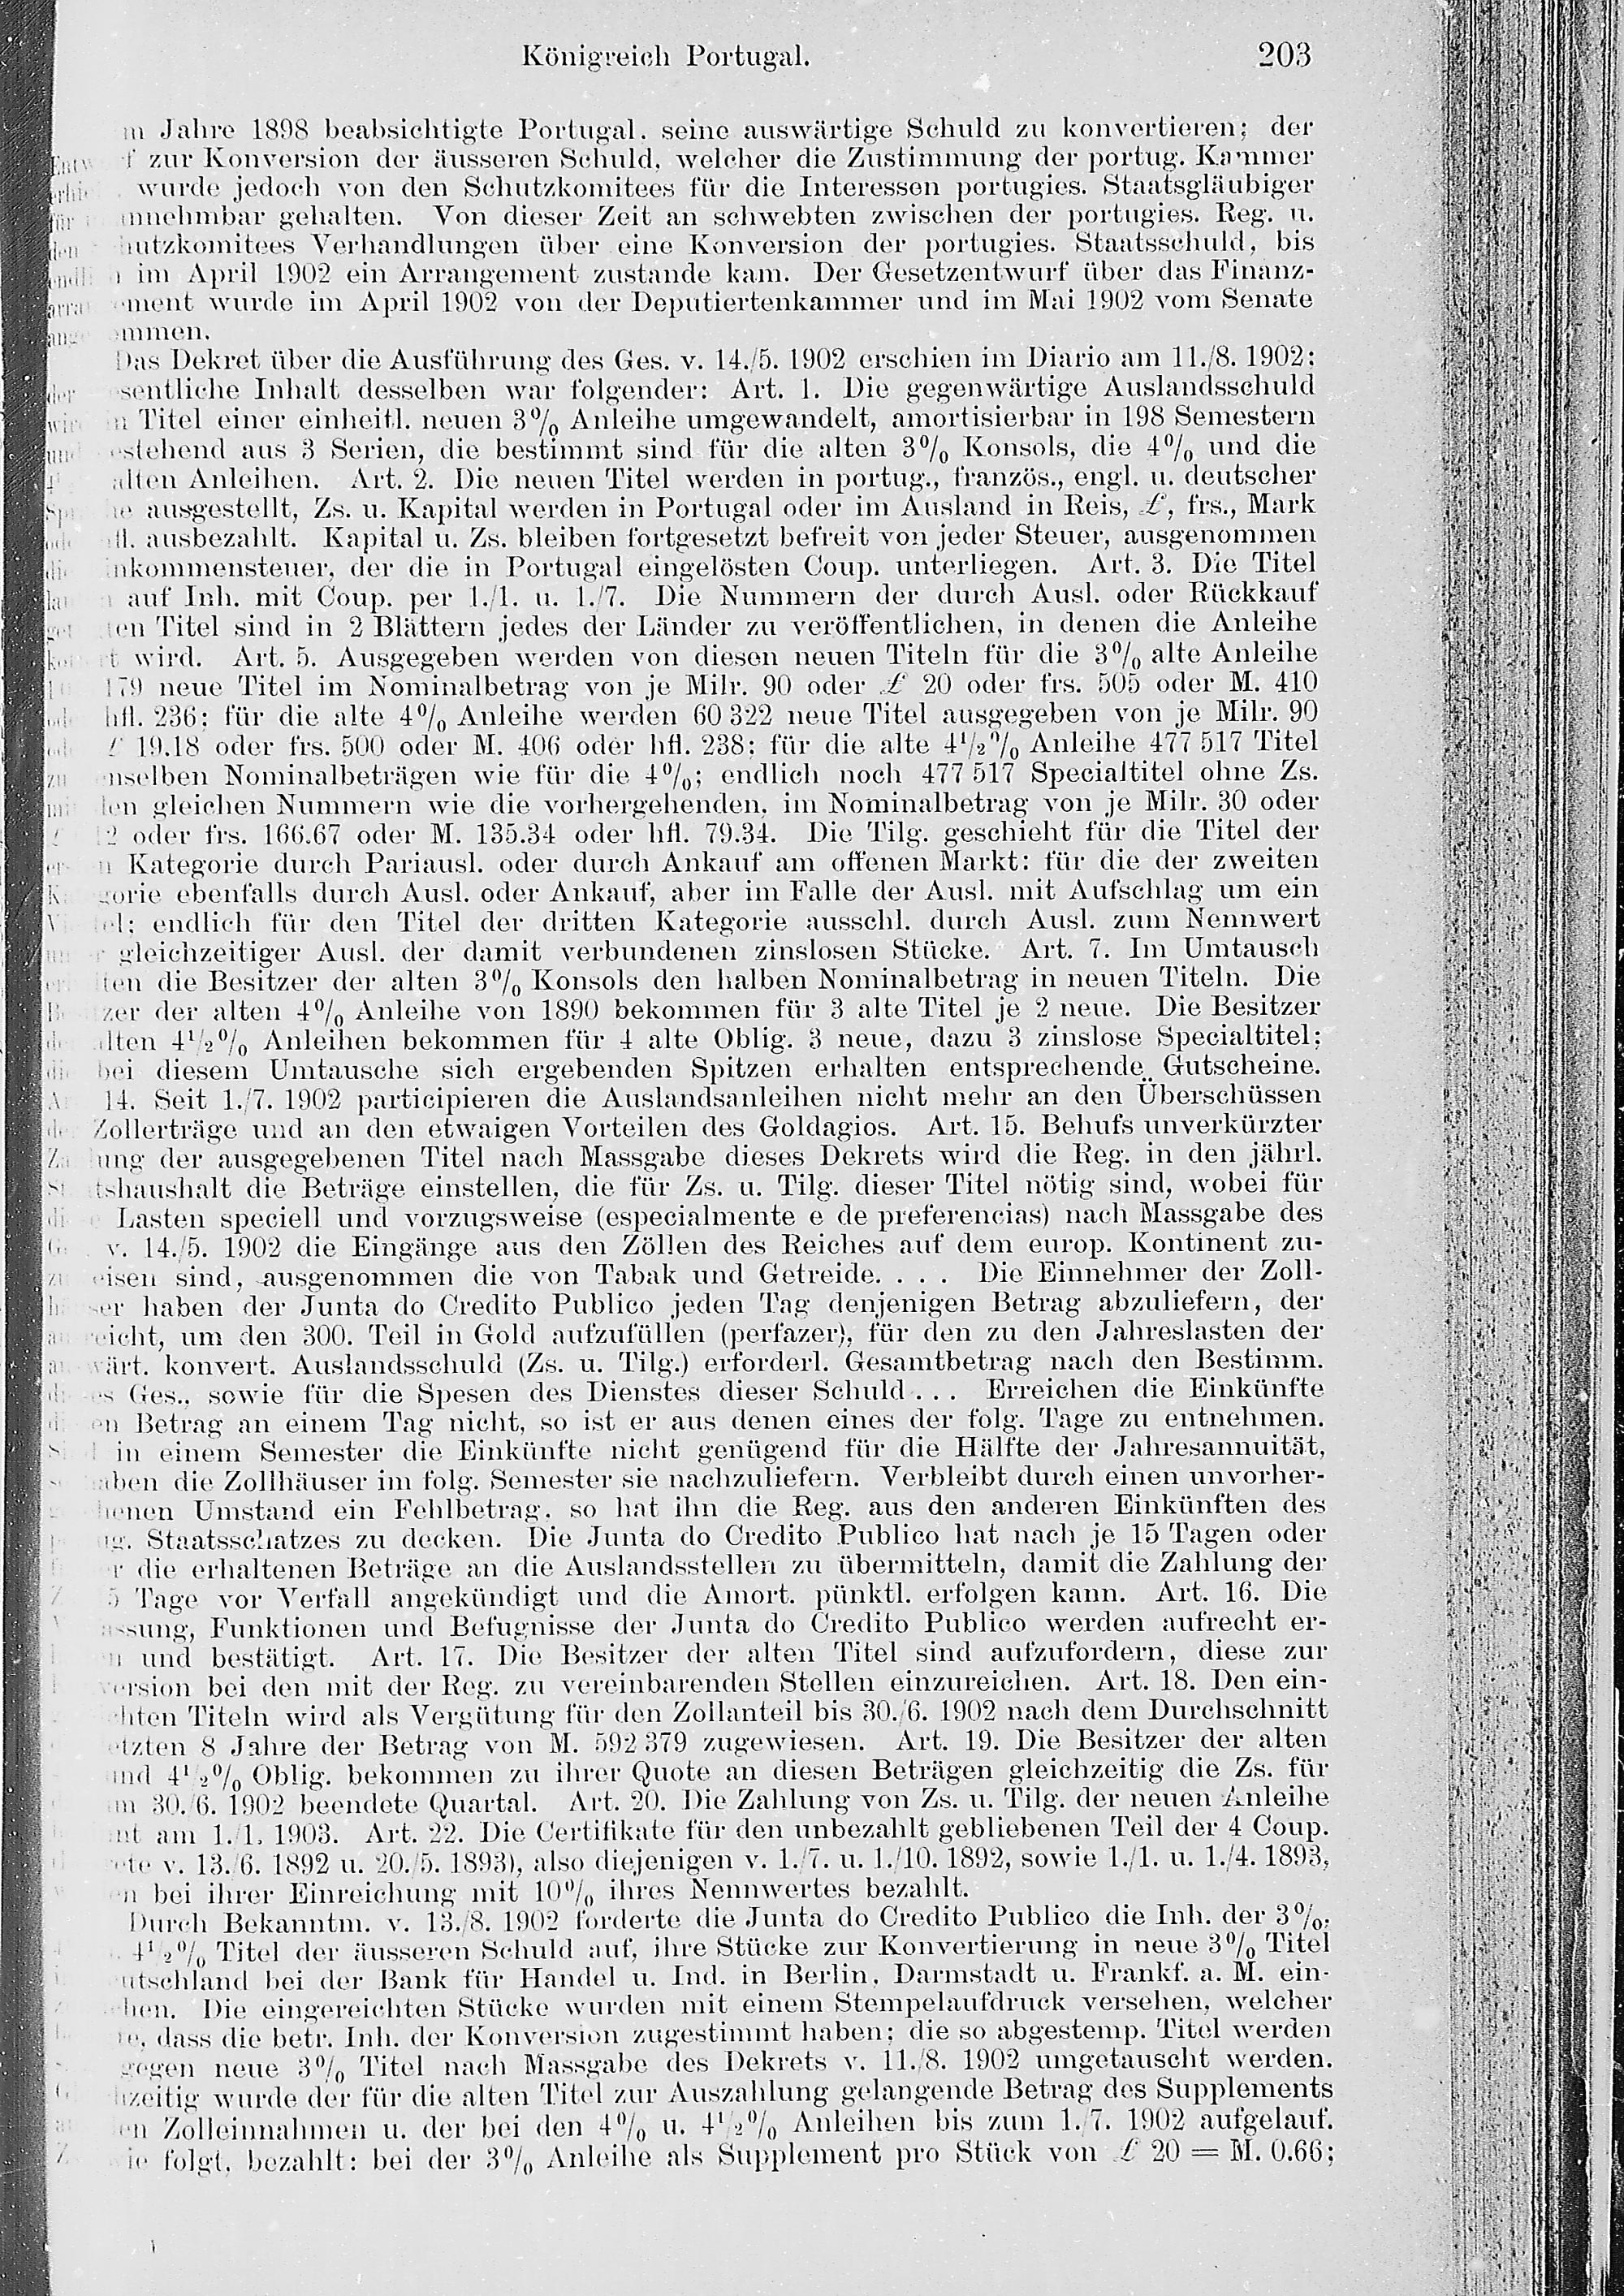 Königreich Portugal. 203
Jahre 1898 beabsichtigte Portugal, seine auswärtige Schuld zu konvertieren; der
zur Konversion der äusseren Schuld, welcher die Zustimmung der portug. Kammer
wurde jedoch von den Schutzkomitees für die Interessen portugies. Staatsgläubiger
gehalten. Von dieser Zeit an schwebten zwischen der portugies. Reg. u.
Verhandlungen über eine Konversion der portugies. Staatsschuld, bis
im April 1902 ein Arrangement zustande kam. Der Gesetzentwurf über das Finanz-
wurde im April 1902 von der Deputiertenkammer und im Mai 1902 vom Senate
ommen.
Das Dekret über die Ausführung des Ges. v. 14./5. 1902 erschien im Diario am 11./8. 1902;
der sentliche Inhalt desselben war folgender: Art. 1. Die gegenwärtige Auslandsschuld
Titel einer einheitl. neuen 3% Anleihe umgewandelt, amortisierbar in 198 Semestern
und estehend aus 3 Serien, die bestimmt sind für die alten 3% Konsols, die 4% und die
alten Anleihen. Art. 2. Die neuen Titel werden in portug., französ., engl. u. deutscher
ausgestellt, Zs. u. Kapital werden in Portugal oder im Ausland in Reis, £, frs., Mark
fl. ausbezahlt. Kapital u. Zs. bleiben fortgesetzt befreit von jeder Steuer, ausgenommen
die inkommensteuer, der die in Portugal eingelösten Coup. unterliegen. Art. 3. Die Titel
auf Inh. mit Coup. per 1./1. u. 1./7. Die Nummern der durch Ausl. oder Rückkauf
get ten Titel sind in 2 Blättern jedes der Länder zu veröffentlichen, in denen die Anleihe
kot rt wird. Art. 5. Ausgegeben werden von diesen neuen Titeln für die 3% alte Anleihe
179 neue Titel im Nominalbetrag von je Milr. 90 oder £ 20 oder frs. 505 oder M. 410
hfl. 236; für die alte 4% Anleihe werden 60 322 neue Titel ausgegeben von je Milr. 90
£ 19.18 oder frs. 500 oder M. 406 oder hfl. 238; für die alte 4½% Anleihe 477 517 Titel
zu enselben Nominalbeträgen wie für die 4%; endlich noch 477 517 Specialtitel ohne Zs.
mit den gleichen Nummern wie die vorhergehenden, im Nominalbetrag von je Milr. 30 oder
12 oder frs. 166.67 oder M. 135.34 oder hfl. 79.34. Die Tilg. geschieht für die Titel der
Kategorie durch Pariausl. oder durch Ankauf am offenen Markt; für die der zweiten
gorie ebenfalls durch Ausl. oder Ankauf, aber im Falle der Ausl. mit Aufschlag um ein
tel; endlich für den Titel der dritten Kategorie ausschl. durch Ausl. zum Nennwert
gleichzeitiger Ausl. der damit verbundenen zinslosen Stücke. Art. 7. Im Umtausch
ten die Besitzer der alten 3% Konsols den halben Nominalbetrag in neuen Titeln. Die
zer der alten 4% Anleihe von 1890 bekommen für 3 alte Titel je 2 neue. Die Besitzer
alten 4½% Anleihen bekommen für 4 alte Oblig. 3 neue, dazu 3 zinslose Specialtitel;
die bei diesem Umtausche sich ergebenden Spitzen erhalten entsprechende Gutscheine.
14. Seit 1./7. 1902 participieren die Auslandsanleihen nicht mehr an den Überschüssen
der Zollerträge und an den etwaigen Vorteilen des Goldagios. Art. 15. Behufs unverkürzter
Za lung der ausgegebenen Titel nach Massgabe dieses Dekrets wird die Reg. in den jährl.
St tshaushalt die Beträge einstellen, die für Zs. u. Tilg. dieser Titel nötig sind, wobei für
Lasten speciell und vorzugsweise (especialmente e de preferencias) nach Massgabe des
v. 14./5. 1902 die Eingänge aus den Zöllen des Reiches auf dem europ. Kontinent zu-
eisen sind, ausgenommen die von Tabak und Getreide. . . . Die Einnehmer der Zoll-
ser haben der Junta do Credito Publico jeden Tag denjenigen Betrag abzuliefern, der
reicht, um den 300. Teil in Gold aufzufüllen (perfazer), für den zu den Jahreslasten der
wärt. konvert. Auslandsschuld (Zs. u. Tilg.) erforderl. Gesamtbetrag nach den Bestimm.
es Ges., sowie für die Spesen des Dienstes dieser Schuld . . . Erreichen die Einkünfte
en Betrag an einem Tag nicht, so ist er aus denen eines der folg. Tage zu entnehmen.
in einem Semester die Einkünfte nicht genügend für die Hälfte der Jahresannuität,
aben die Zollhäuser im folg. Semester sie nachzuliefern. Verbleibt durch einen unvorher-
henen Umstand ein Fehlbetrag, so hat ihn die Reg. aus den anderen Einkünften des
ug. Staatsschatzes zu decken. Die Junta do Credito Publico hat nach je 15 Tagen oder
die erhaltenen Beträge an die Auslandsstellen zu übermitteln, damit die Zahlung der
5 Tage vor Verfall angekündigt und die Amort. pünktl. erfolgen kann. Art. 16. Die
assung, Funktionen und Befugnisse der Junta do Credito Publico werden aufrecht er-
und bestätigt. Art. 17. Die Besitzer der alten Titel sind aufzufordern, diese zur
version bei den mit der Reg. zu vereinbarenden Stellen einzureichen. Art. 18. Den ein-
chten Titeln wird als Vergütung für den Zollanteil bis 30./6. 1902 nach dem Durchschnitt
etzten 8 Jahre der Betrag von M. 592 379 zugewiesen. Art. 19. Die Besitzer der alten
und 4½% Oblig. bekommen zu ihrer Quote an diesen Beträgen gleichzeitig die Zs. für
am 30./6. 1902 beendete Quartal. Art. 20. Die Zahlung von Zs. u. Tilg. der neuen Anleihe
nt am 1./1. 1903. Art. 22. Die Certifikate für den unbezahlt gebliebenen Teil der 4 Coup.
ete v. 13./6. 1892 u. 20./5. 1893), also diejenigen v. 1./7. u. 1./10. 1892, sowie 1./1. u. 1./4. 1893,
en bei ihrer Einreichung mit 10% ihres Nennwertes bezahlt.
Durch Bekanntm. v. 13./8. 1902 forderte die Junta do Credito Publico die Inh. der 3%,
4½% Titel der äusseren Schuld auf, ihre Stücke zur Konvertierung in neue 3% Titel
utschland bei der Bank für Handel u. Ind. in Berlin, Darmstadt u. Frankf. a. M. ein-
hen. Die eingereichten Stücke wurden mit einem Stempelaufdruck versehen, welcher
te, dass die betr. Inh. der Konversion zugestimmt haben; die so abgestemp. Titel werden
gegen neue 3% Titel nach Massgabe des Dekrets v. 11./8. 1902 umgetauscht werden.
hzeitig wurde der für die alten Titel zur Auszahlung gelangende Betrag des Supplements
en Zolleinnahmen u. der bei den 4% u. 4½% Anleihen bis zum 1./7. 1902 aufgelauf.
ie folgt, bezahlt: bei der 3% Anleihe als Supplement pro Stück von £ 20 = M. 0.66;